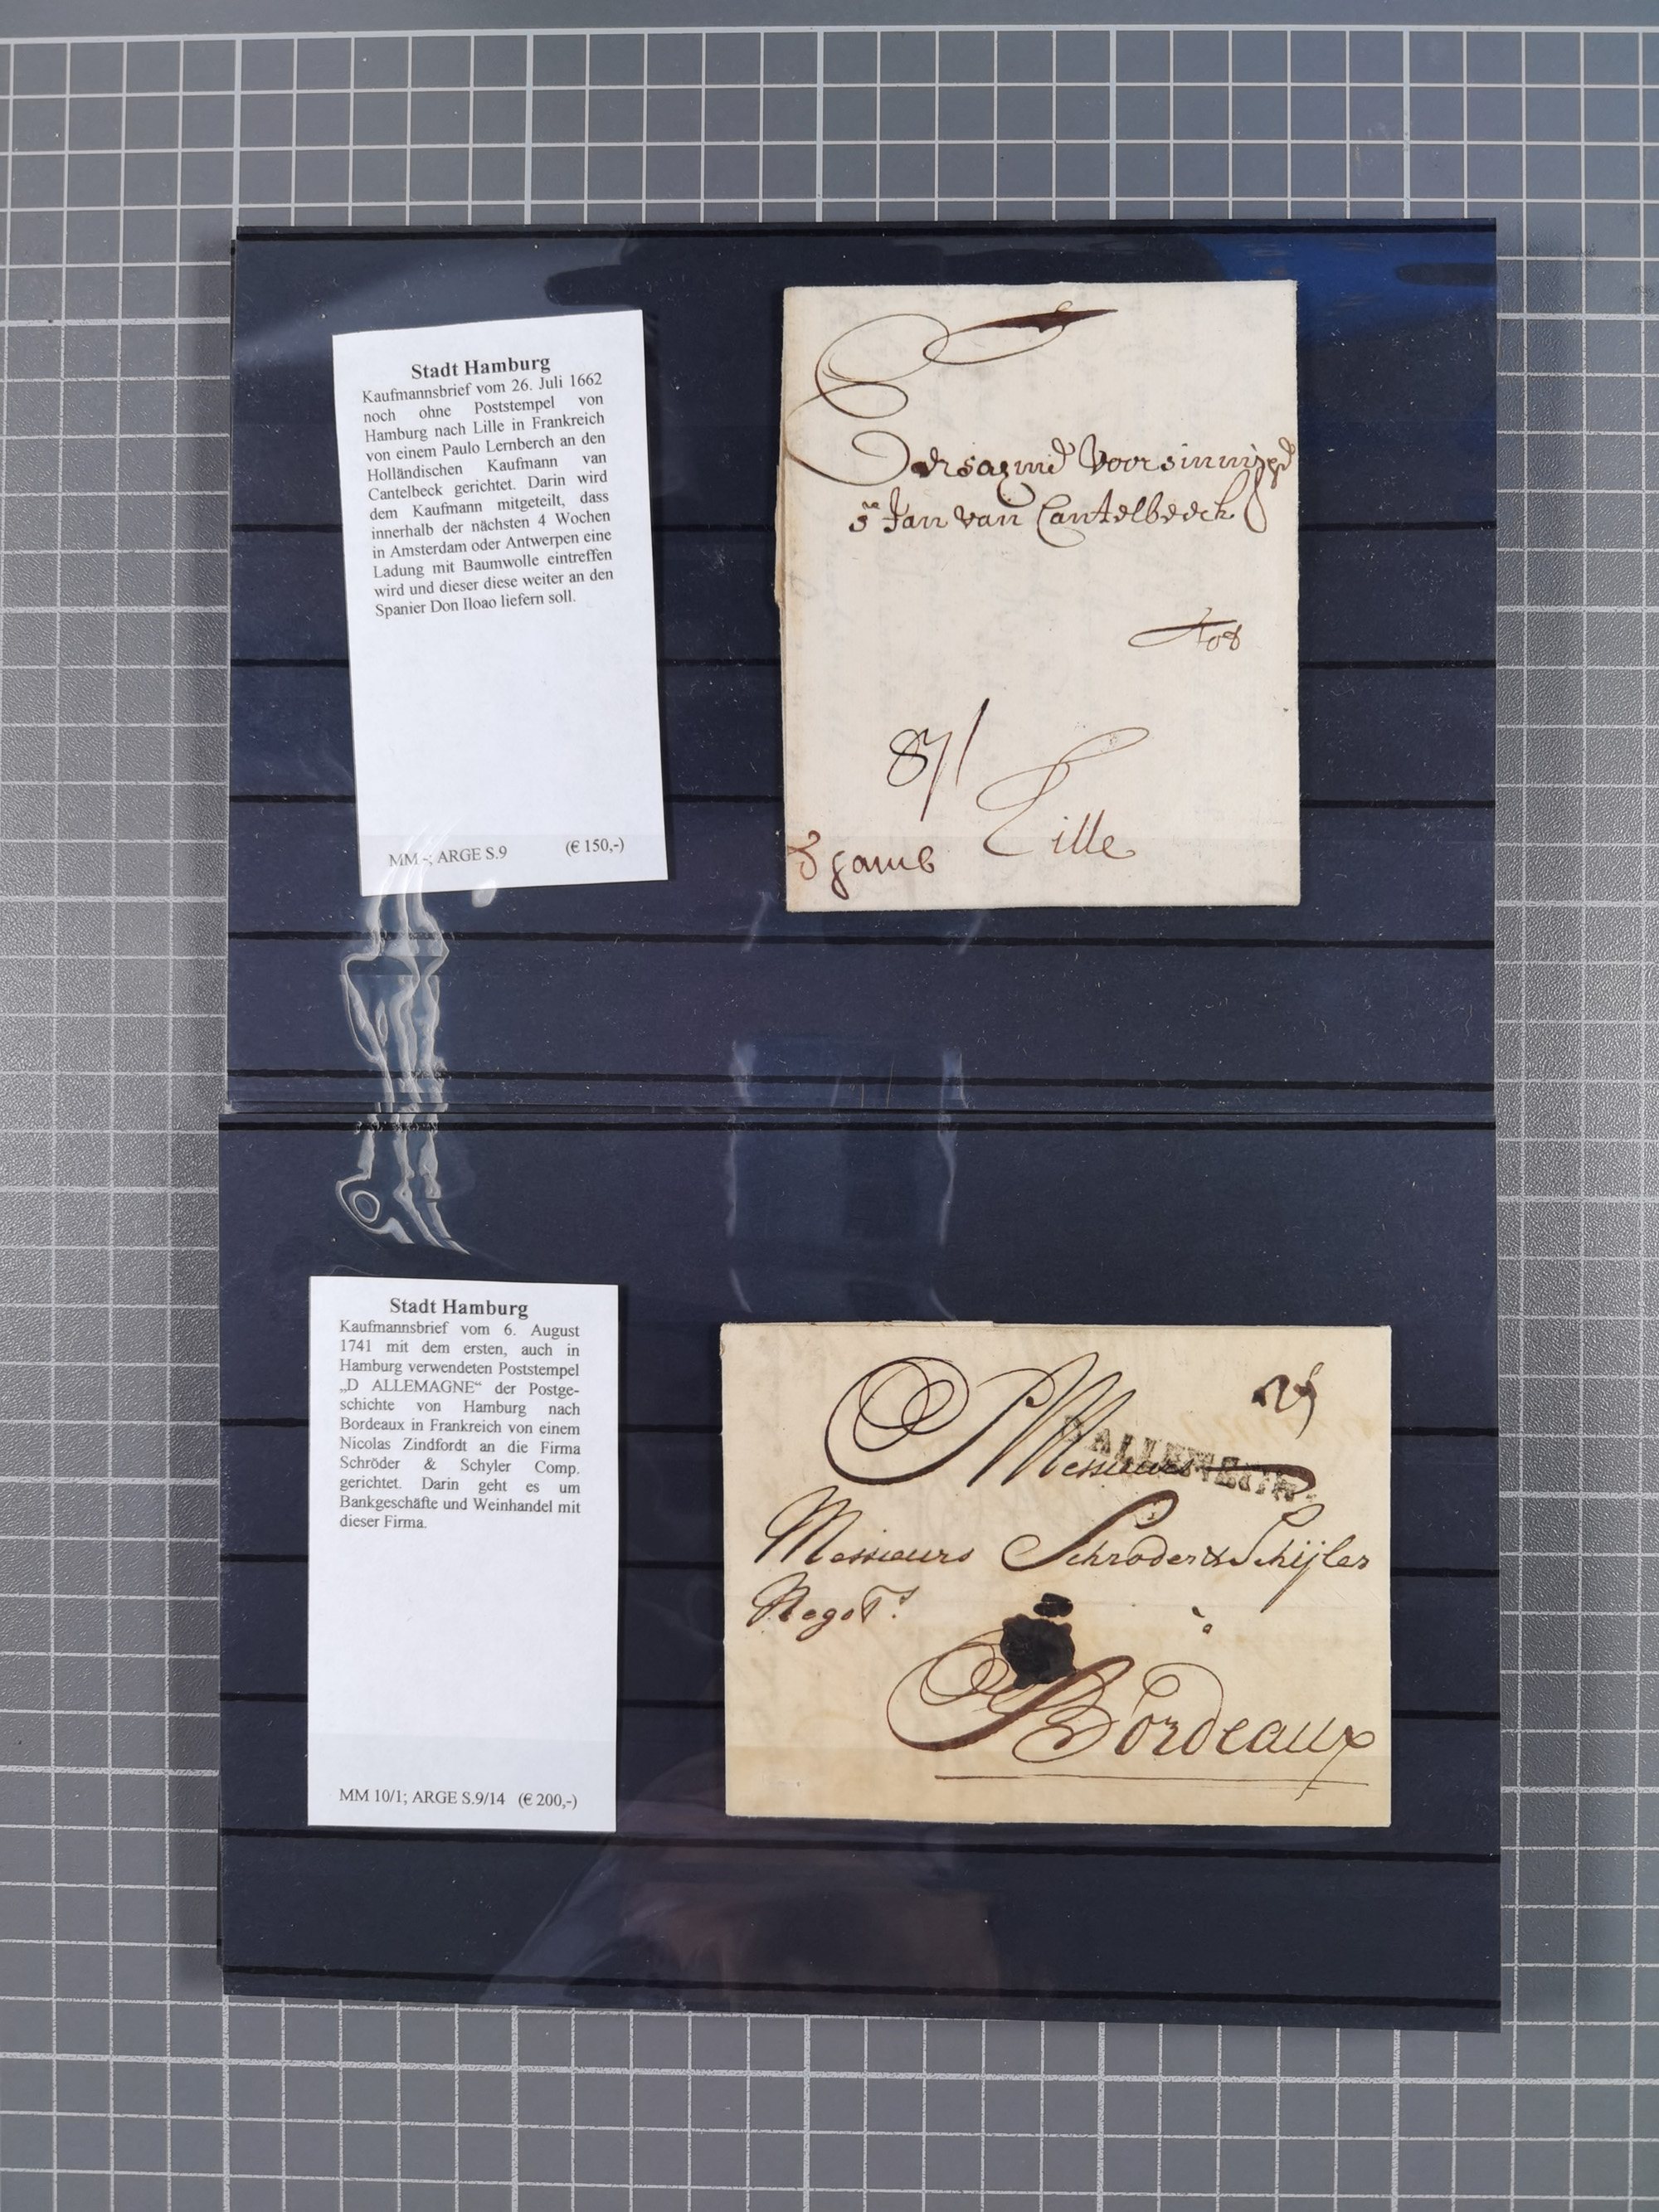 Stadt Hamburg
Kaufmannsbrief vom 26. Juli 1662
noch ohne Poststempel von
Hamburg nach Lille in Frankreich
von einem Paulo Lernberch an den
Holländischen Kaufmann van
Cantelbeck gerichtet. Darin wird
dem Kaufmann mitgeteilt, dass
innerhalb der nächsten 4 Wochen
in Amsterdam oder Antwerpen eine
Ladung mit Baumwolle eintreffen
wird und dieser diese weiter an den
Spanier Don Iloao liefern soll.
MM -; ARGE S.9 (€ 150,-)
Jan van Cantelbeeck
Lille
Stadt Hamburg
Kaufmannsbrief vom 6. August
1741 mit dem ersten, auch in
Hamburg verwendeten Poststempel
„D ALLEMAGNE“ der Postge-
schichte von Hamburg nach
Bordeaux in Frankreich von einem
Nicolas Zindfordt an die Firma
Schröder & Schyler Comp.
gerichtet. Darin geht es um
Bankgeschäfte und Weinhandel mit
dieser Firma.
MM 10/1; ARGE S.9/14 (€ 200,-)
D ALLEMAGNE
Messieurs
Messieurs Schroder & Schijler
Negot.s à
Bordeaux